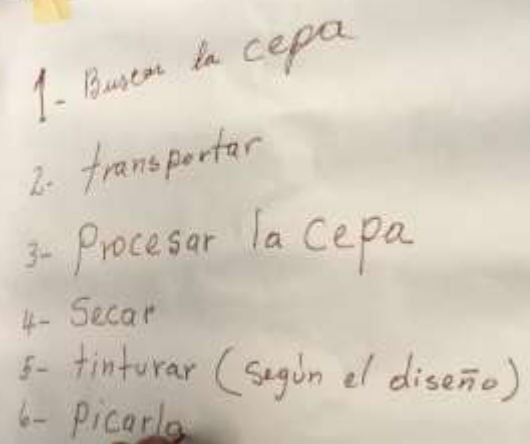 1- Buscar la cepa
2- transportar
3- Procesar la cepa
4- Secar
5- tinturar (según el diseño)
6- Picarla